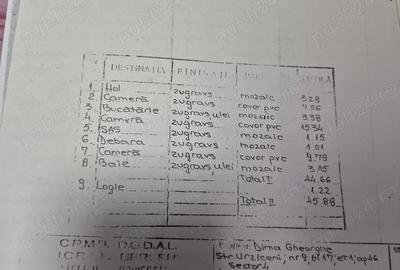 DESTINATIA FINISAJ PARD. S.UTILĂ
1 Hol zugravs mozaic 3.28
2. Cameră zugravs covor pvc 7.56
3. Bucătărie zugravs, ulei mozaic 3.38
4. Cameră zugravs covor pvc 15.34
5 SAS zugravs mozaic 1.15
6 Debara zugravs mozaic 1.01
7. Cameră zugravs covor pvc 9.79
8 Baie zugravs, ulei mozaic 3.15
Total I 44.66
9 Logie 1.22
Total II 45.88
C.P.M.B.-D.G.D.A.L.
Dima Gheorghe
Str. Urziceni, nr 9, bl 17, et 1, ap 46
Sector 4